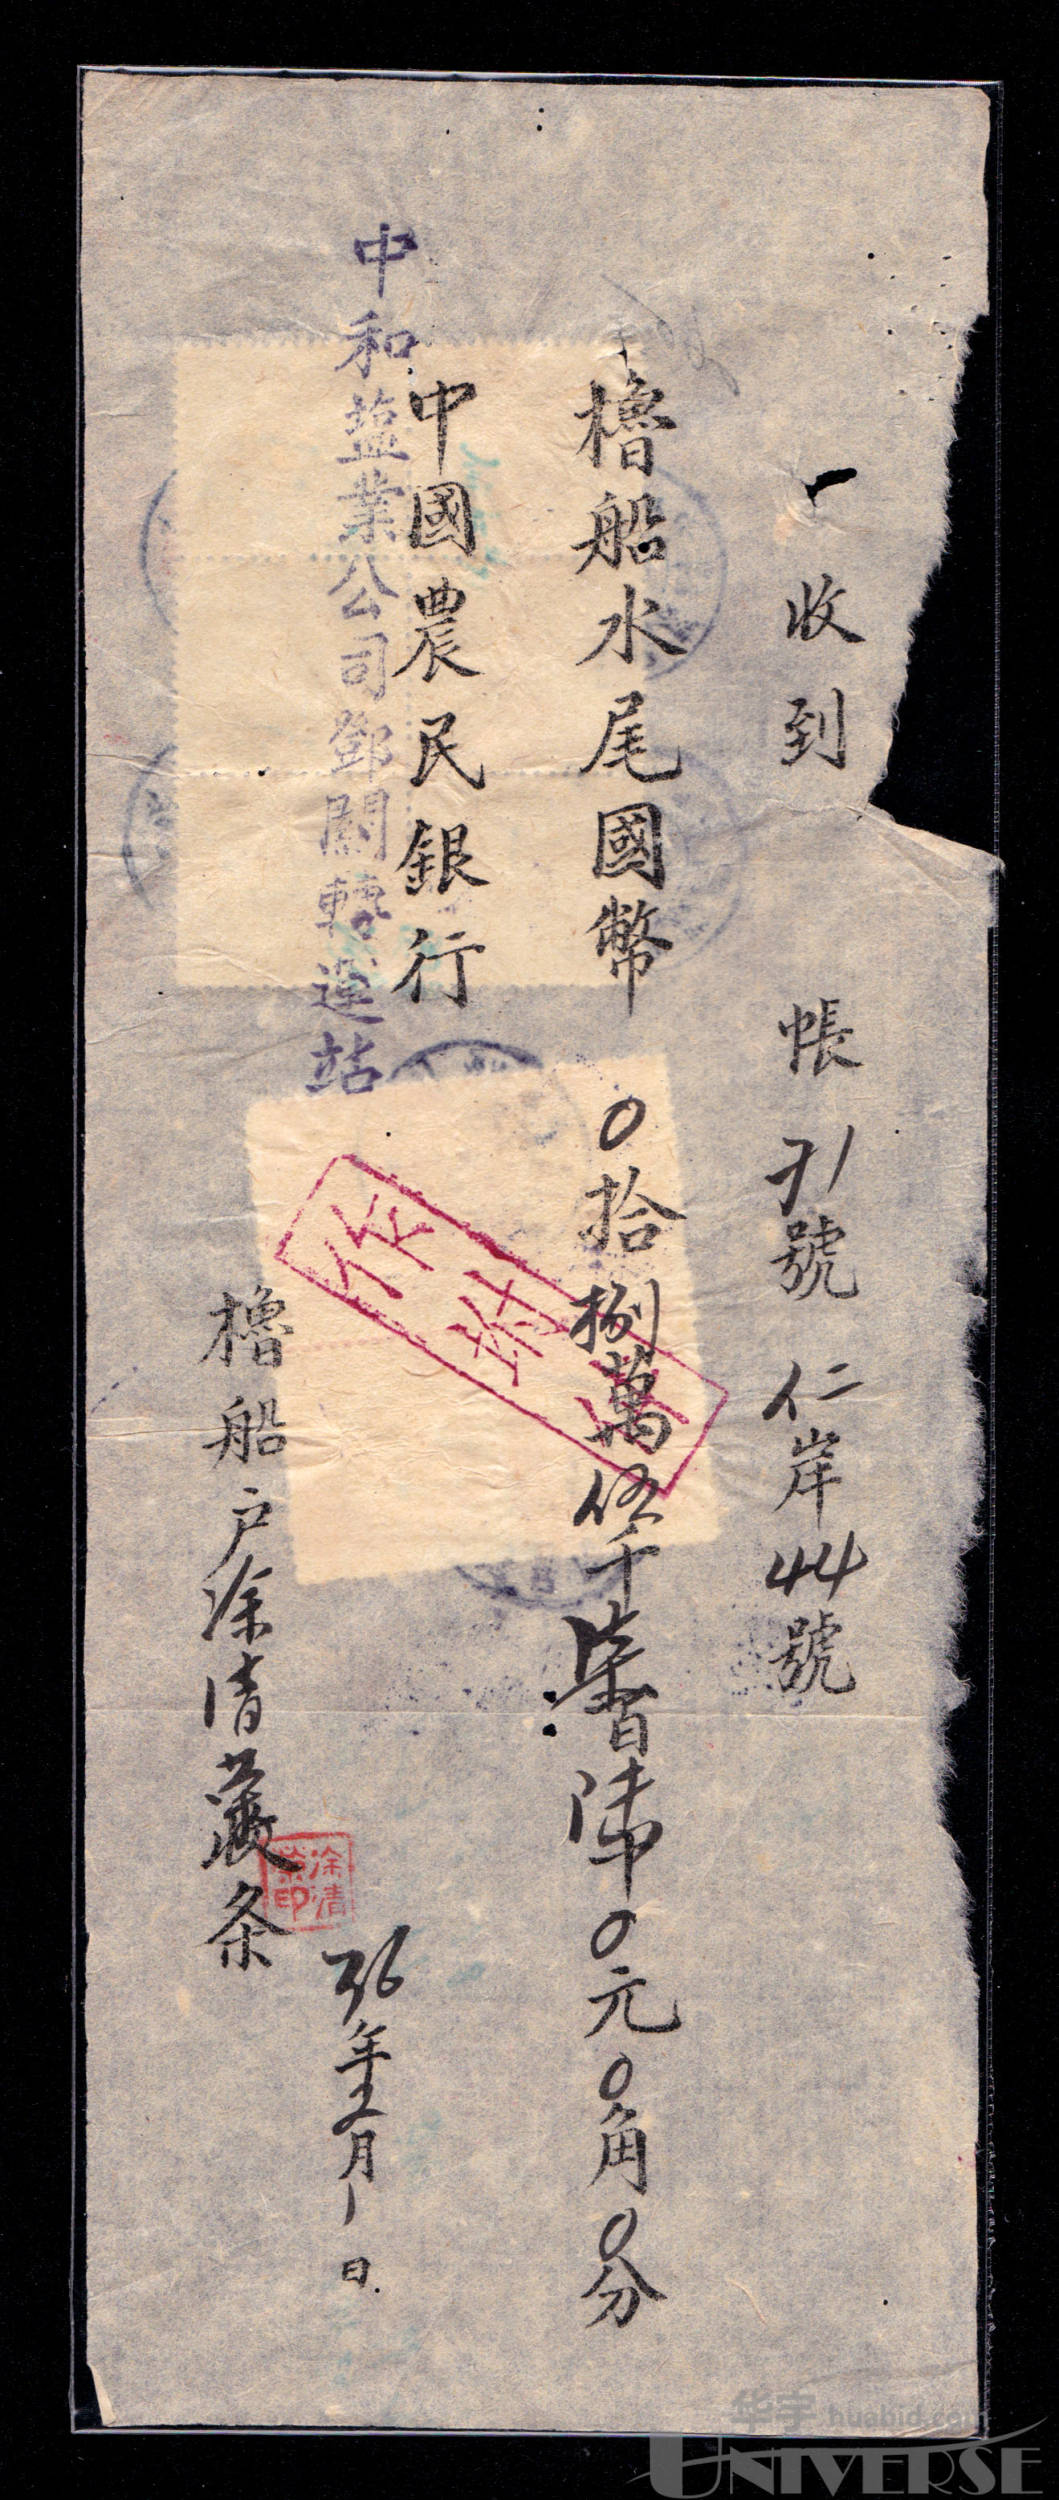 一收到 帳 引號 仁岸 44號
櫓船水尾國幣 0拾捌萬伍千柒百陸0元0角0分
中國農民銀行
中和盐業公司鄧關轉運站
36年五月1日
櫓船户涂清 条
涂清
印
华宇 huabid.com
UNIVERSE